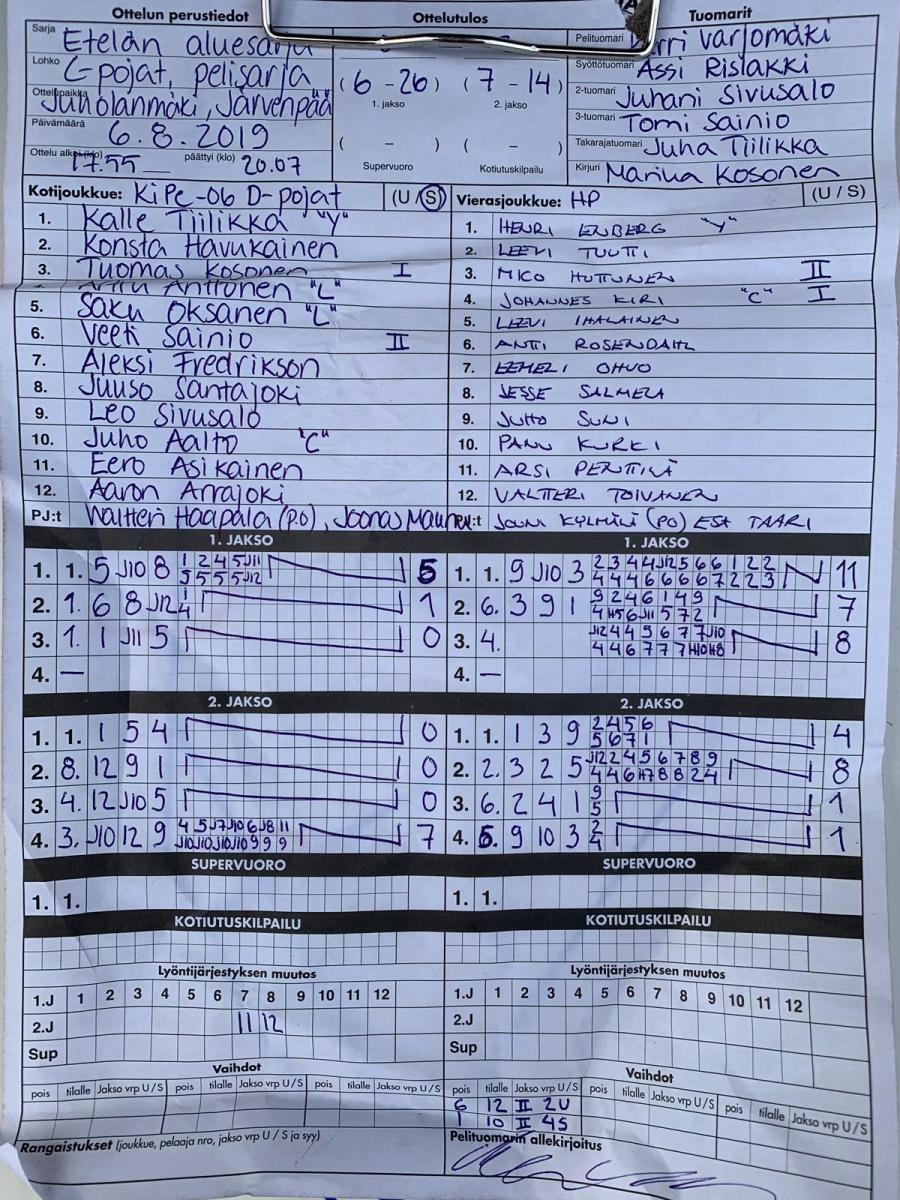 Ottelun perustiedot
Ottelutulos
Tuomarit
Sarja Etelän aluesarja
Lohko C-pojat, pelisarja
Ottelupaikka Juholanmäki, Järvenpää
Päivämäärä 6.8.2019
Ottelu alkoi (klo) 17.55 päättyi (klo) 20.07
(6 - 26) (7 - 14)
1. jakso 2. jakso
( - ) ( - )
Supervuoro Kotiutuskilpailu
Pelituomari Varjomäki
Syöttötuomari Assi Rislakki
2-tuomari Juhani Sivusalo
3-tuomari Tomi Sainio
Takarajatuomari Juha Tiilikka
Kirjuri Marika Kosonen
Kotijoukkue: KiPe-06 D-pojat (U / S)
1. Kalle Tiilikka "Y"
2. Konsta Havukainen
3. Tuomas Kosonen I
Anttonen "L"
5. Saku Oksanen "L"
6. Veeti Sainio II
7. Aleksi Fredrikson
8. Juuso Santajoki
9. Leo Sivusalo
10. Juho Aalto "C"
11. Eero Asikainen
12. Aaron Arrajoki
PJ:t Waltteri Haapala (P.O), Joonas
Vierasjoukkue: HP (U / S)
1. HENRI ENBERG "Y"
2. LEEVI TUUTTI
3. MICO HUTTUNEN II
4. JOHANNES KIRI "C" I
5. LEEVI IHALAINEN
6. ANTTI ROSENDAHL
7. EEMELI OHVO
8. JESSE SALMELA
9. JUHO SUNI
10. PANU KURKI
11. ARSI PENTTILÄ
12. VALTTERI TOIVANEN
JOUNI KYLMÄLÄ (PO) ESA TAARI
1. JAKSO
1. 1. 5 J10 8 1 2 4 5 J11 5
5 5 5 5 J12
2. 1. 6 8 J12 1 1
4
3. 1. 1 J11 5 0
4. —
1. JAKSO
1. 1. 9 J10 3 2 3 4 4 J12 5 6 6 1 2 2 11
4 4 4 6 6 6 6 7 2 2 3
2. 6. 3 9 1 9 2 4 6 1 4 9 7
4 H5 6 J11 5 7 2
3. 4. J12 4 4 5 6 7 7 J10 8
4 4 6 7 7 7 H10 H8
4. —
2. JAKSO
1. 1. 1 5 4 0
2. 8. 12 9 1 0
3. 4. 12 J10 5 0
4. 3. J10 12 9 4 5 J7 J10 6 J8 11 7
J10 J10 J10 J10 9 9 9
2. JAKSO
1. 1. 1 3 9 2 4 5 6 4
5 6 7 1
2. 2. 3 2 5 J12 2 4 5 6 7 8 9 8
4 4 6 H7 8 8 2 4
3. 6. 2 4 1 9 1
5
4. 5. 9 10 3 2 1
4
SUPERVUORO
1. 1.
SUPERVUORO
1. 1.
KOTIUTUSKILPAILU
KOTIUTUSKILPAILU
Lyöntijärjestyksen muutos
1.J 1 2 3 4 5 6 7 8 9 10 11 12
2.J 11 12
Sup
Lyöntijärjestyksen muutos
1.J 1 2 3 4 5 6 7 8 9 10 11 12
2.J
Sup
Vaihdot
pois tilalle Jakso vrp U / S pois tilalle Jakso vrp U / S pois tilalle Jakso vrp U / S
Vaihdot
pois tilalle Jakso vrp U / S pois tilalle Jakso vrp U / S pois tilalle Jakso vrp U / S
6 12 II 2U
1 10 II 4S
Rangaistukset (joukkue, pelaaja nro, jakso vrp U / S ja syy)
Pelituomarin allekirjoitus